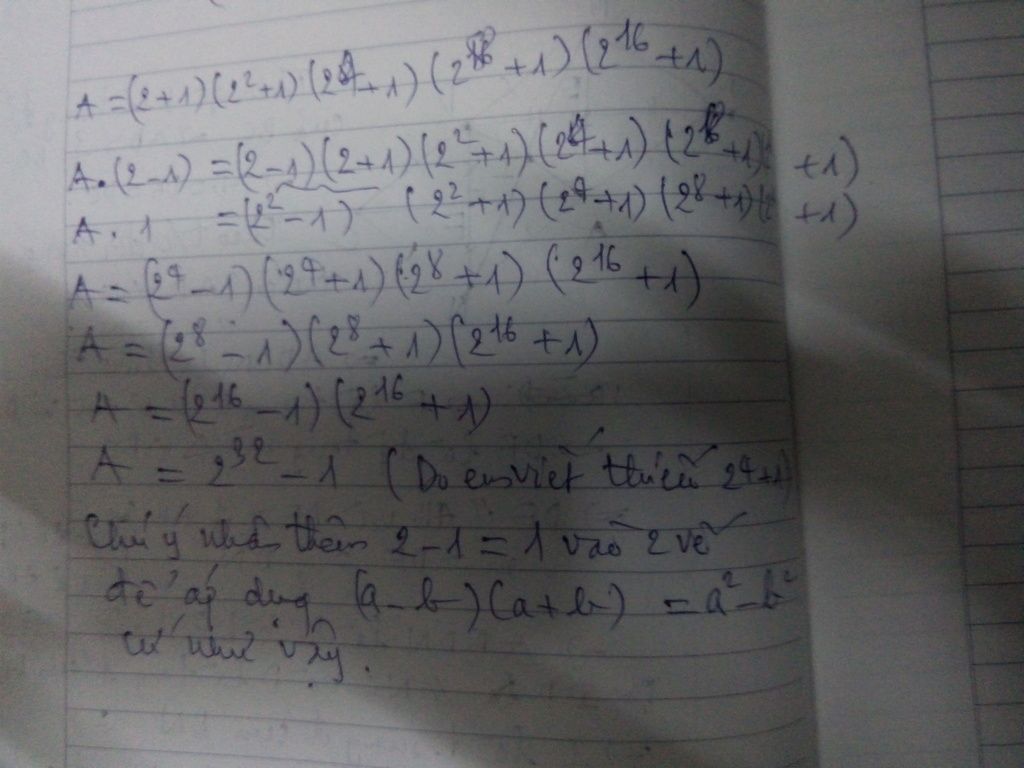 A = (2+1)(2²+1)(2⁴+1)(2⁸+1)(2¹⁶+1)
A.(2-1) = (2-1)(2+1)(2²+1).(2⁴+1)(2⁸+1)( +1)
A . 1 = (2²-1) (2²+1)(2⁴+1)(2⁸+1)( +1)
A = (2⁴-1)(2⁴+1)(2⁸+1) (2¹⁶+1)
A = (2⁸-1)(2⁸+1)(2¹⁶+1)
A = (2¹⁶-1)(2¹⁶+1)
A = 2³²-1 (Do em viết thiếu 2⁴+1)
Chú ý nhân thêm 2-1=1 vào 2 vế
để áp dụng (a-b)(a+b) = a²-b²
cứ như vậy.